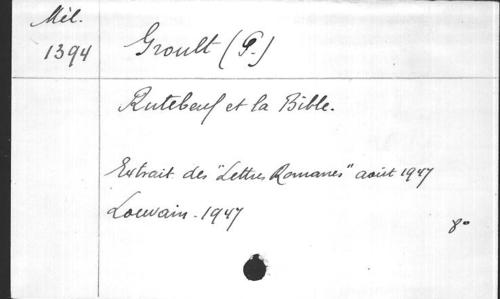 Mél.
1394
Groult (P.)
Rutebeuf et la Bible.
Extrait des "Lettres Romanes" août 1947
Louvain - 1947
8°